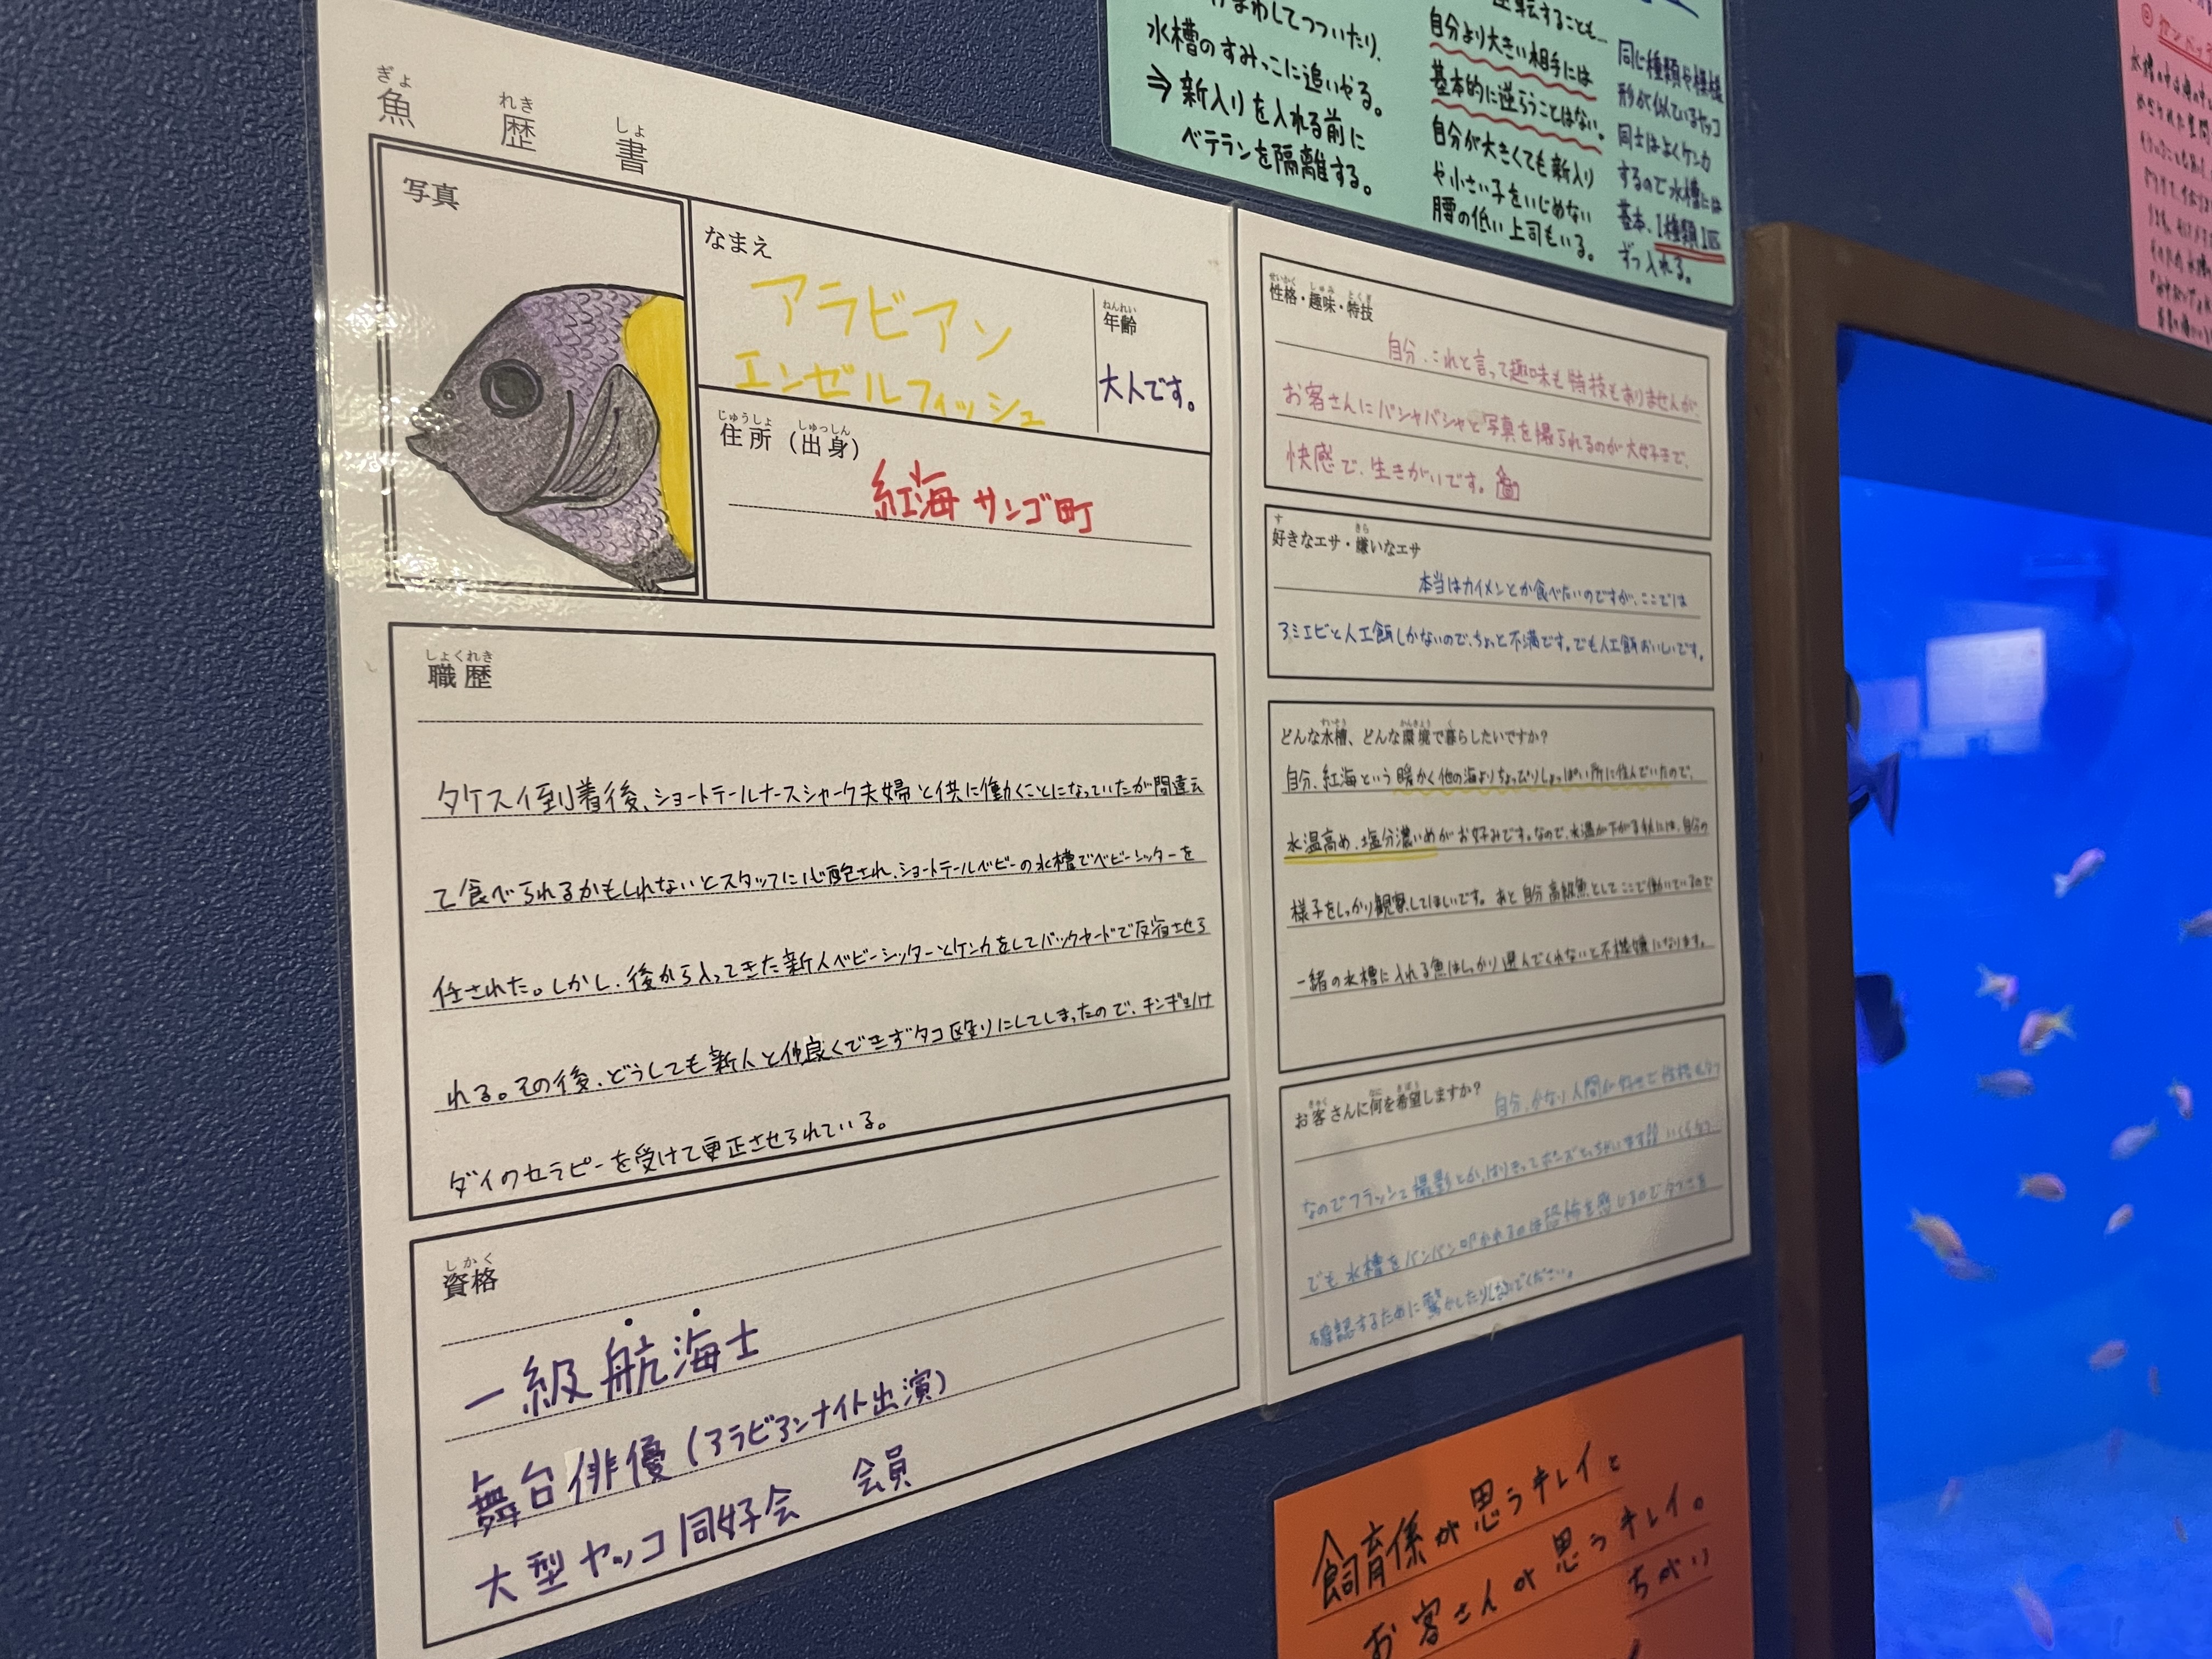 魚歴書
ぎょ れき しょ
写真
なまえ
アラビアン
エンゼルフィッシュ
ねんれい
年齢
大人です。
じゅうしょ しゅっしん
住所（出身）
紅海 サンゴ町
しょくれき
職歴
タケスイ到着後、ショートテールナースシャーク夫婦と供に働くことになっていたが間違え
て食べられるかもしれないとスタッフに心配され、ショートテールベビーの水槽でベビーシッターを
任された。しかし、後から入ってきた新人ベビーシッターとケンカをしてバックヤードで反省させら
れる。その後、どうしても新人と仲良くできずタコ殴りにしてしまったので、キンギョハナ
ダイのセラピーを受けて更正させられている。
しかく
資格
一級航海士
舞台俳優（アラビアンナイト出演）
大型ヤッコ同好会 会員
せいかく しゅみ とくぎ
性格・趣味・特技
自分、これと言って趣味も特技もありませんが、
お客さんにバシャバシャと写真を撮られるのが大好きで、
快感で、生きがいです。
す きら
好きなエサ・嫌いなエサ
本当はカイメンとか食べたいのですが、ここでは
アミエビと人工餌しかないので、ちょっと不満です。でも人工餌おいしいです。
すいそう かんきょう く
どんな水槽、どんな環境で暮らしたいですか？
自分、紅海という暖かく他の海よりちょっぴりしょっぱい所に住んでいたので、
水温高め、塩分濃いめがお好みです。なので、水温が下がる秋には、自分の
様子をしっかり観察してほしいです。あと自分高級魚としてここで働いているので
一緒の水槽に入れる魚はしっかり選んでくれないと不機嫌になります。
きゃく なに きぼう
お客さんに何を希望しますか？
自分、かなり人間が好きで性格も
なのでフラッシュ撮影とか、はりきってポーズとっちゃいます
でも水槽をバンバン叩かれるのは恐怖を感じるので
確認するために驚かしたりしないでください。
まわしてつついたり、
水槽のすみっこに追いやる。
⇒新入りを入れる前に
ベテランを隔離する。
逆転することも…
自分より大きい相手には
基本的に逆らうことはない。
自分が大きくても新入り
や小さい子をいじめない
腰の低い上司もいる。
同じ種類や模様
形が似ているヤッコ
同士はよくケンカ
するので水槽には
基本、1種類1匹
ずつ入れる。
飼育係が思うキレイと
お客さんが思うキレイ。
ちがい